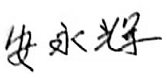 安永辉